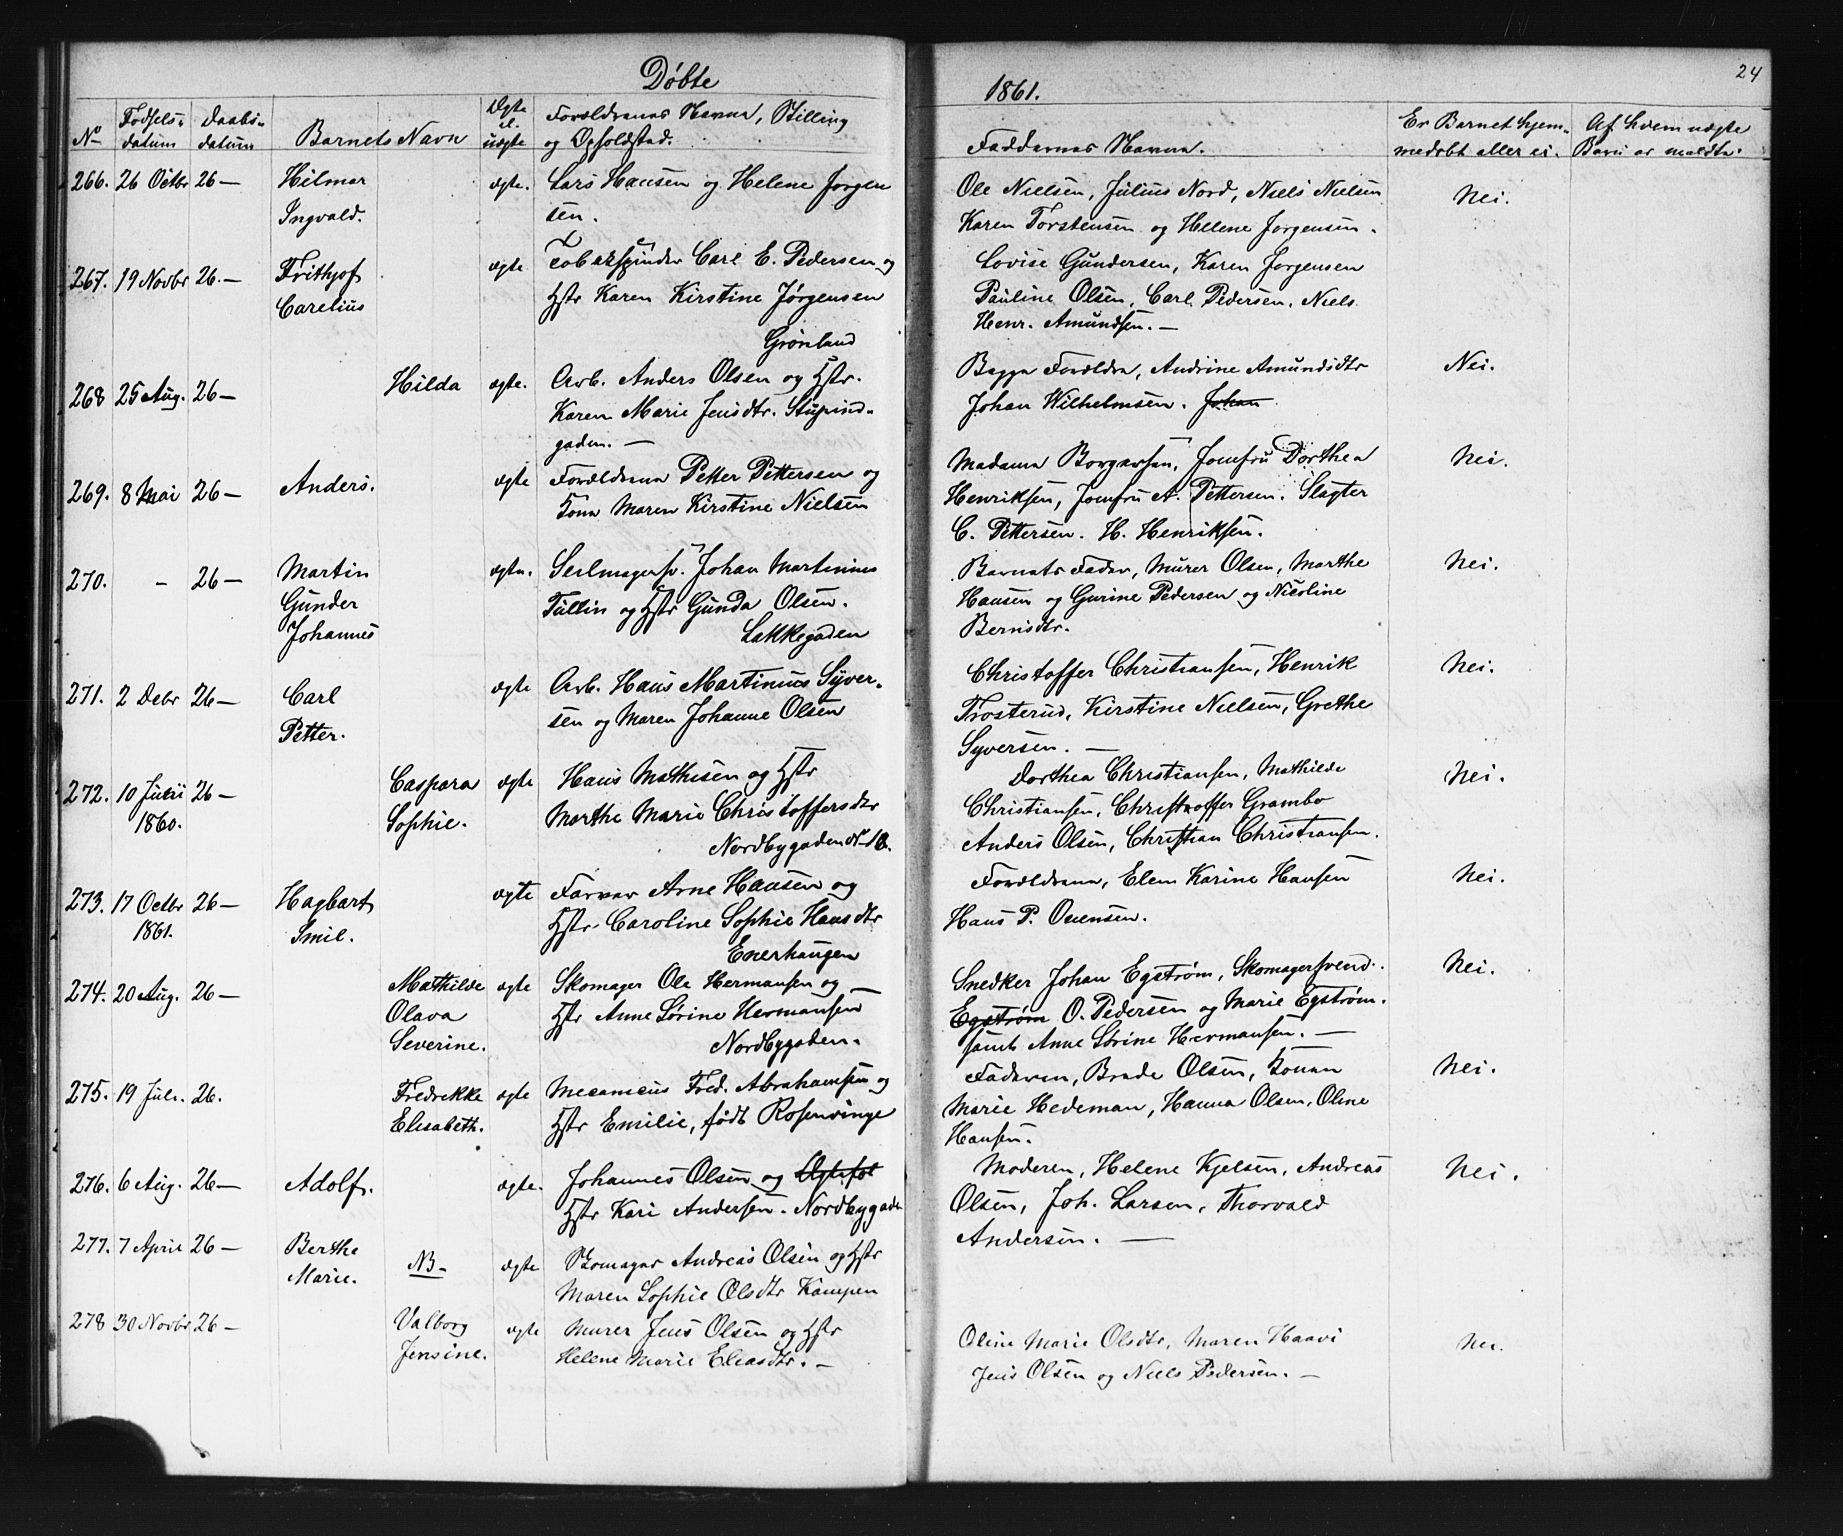 Døbte
1861.
24
No
Fødsels-
datum
Daabs-
datum
Barnets Navn
Ægte
el.
uægte
Forældrenes Navne, Stilling
og Opholdsted.
Faddernes Navne.
Er Barnet hjem-
medøbt eller ei.
Af hvem uægte
Børn er meldte.
266. 26 Octbr 26 — Hilmar ægte. Lars Hansen og Helene Jorgen Ole Nielsen, Julius Nord, Niels Nielsen Nei.
Ingvald. sen. Karen Torstensen og Helene Jorgensen.
267. 19 Novbr 26. — Frithjof ægte Tobaksspinder Carl E. Pedersen og Lovise Gundersen, Karen Jorgensen
Carelius Hstr Karen Kirstine Jørgensen Pauline Olsen, Carl Pedersen, Niels
Grønland Henr. Amundsen. —
268 25 Aug. 26 — Hilda ægte. Arb. Anders Olsen og Hstr. Begge Forældre, Andrine Amundsdtr Nei.
Karen Marie Jensdtr. Stupind- Johan Wilhelmsen. Johan
gaden. —
269. 8 Mai 26 — Anders. ægte Forældrene Petter Pettersen og Madame Borgersen, Jomfru Dorthea Nei.
Kone Maren Kirstine Nielsen Henriksen, Jomfru A. Pettersen. Slagter
C. Pettersen. H. Henriksen.
270. - 26 — Martin ægte. Seilmagersv. Johan Martinius Barnets Fader, Murer Olsen, Marthe Nei.
Gunder Tullin og Hstr Gunda Olsen. Hansen og Gurine Pedersen og Nicoline
Johannes Lakkegaden Berntsdtr.
271. 2 Debr 26 — Carl ægte Arb. Hans Martinius Syver- Christoffer Christiansen, Henrik Nei.
Petter. sen og Maren Johanne Olsen Trosterud, Kirstine Nielsen, Grethe
Syversen. —
272. 10 Juni 26 — Caspara ægte Hans Mathisen og Hstr Dorthea Christiansen, Mathilde Nei.
1860. Sophie. Marthe Marie Christoffersdtr Christiansen, Christoffer Grambo
Nordbygaden No 18. Anders Olsen, Christian Christiansen.
273. 17 Octbr 26 — Hagbart ægte Farver Arne Hansen og Forældrene, Elen Karine Hansen Nei.
1861. Smil. Hstr. Caroline Sophie Hansdtr Hans P. Ouensen.
Enerhaugen
274. 20 Aug. 26 — Mathilde ægte Skomager Ole Hermansen og Snedker Johan Egstrøm, Skomagersvend. Nei.
Olava Hstr Anne Sørine Hermansen Egstrøm O. Pedersen og Marie Egstrøm.
Severine. Nordbygaden. samt Anne Sørine Hermansen. —
275. 19 Juli. 26. Fredrekke ægte Mecanicus Fred. Abrahamsen og Faderen, Brede Olsen, Konen Nei.
Elisabeth. Hstr Emilie, født Rosenvinge Marie Hedeman, Hanna Olsen, Oline
Hansen.
276. 6 Aug. 26 — Adolf. ægte. Johannes Olsen og Moderen, Helene Kjelsen, Andreas Nei.
Hstr Kari Andersen. Nordbygade Olsen, Joh. Larsen, Thorvald
Andersen. —
277. 7 April 26 — Berthe NB- ægte Skomager Andreas Olsen og Hstr
Marie. Maren Sophie Olsdtr Kampen
278 30 Novbr 26 — Valborg ægte Murer Jens Olsen og Hstr Oline Marie Olsdtr, Maren Haavi Nei.
Jensine. Helene Marie Eliasdtr. — Jens Olsen og Niels Pedersen. —